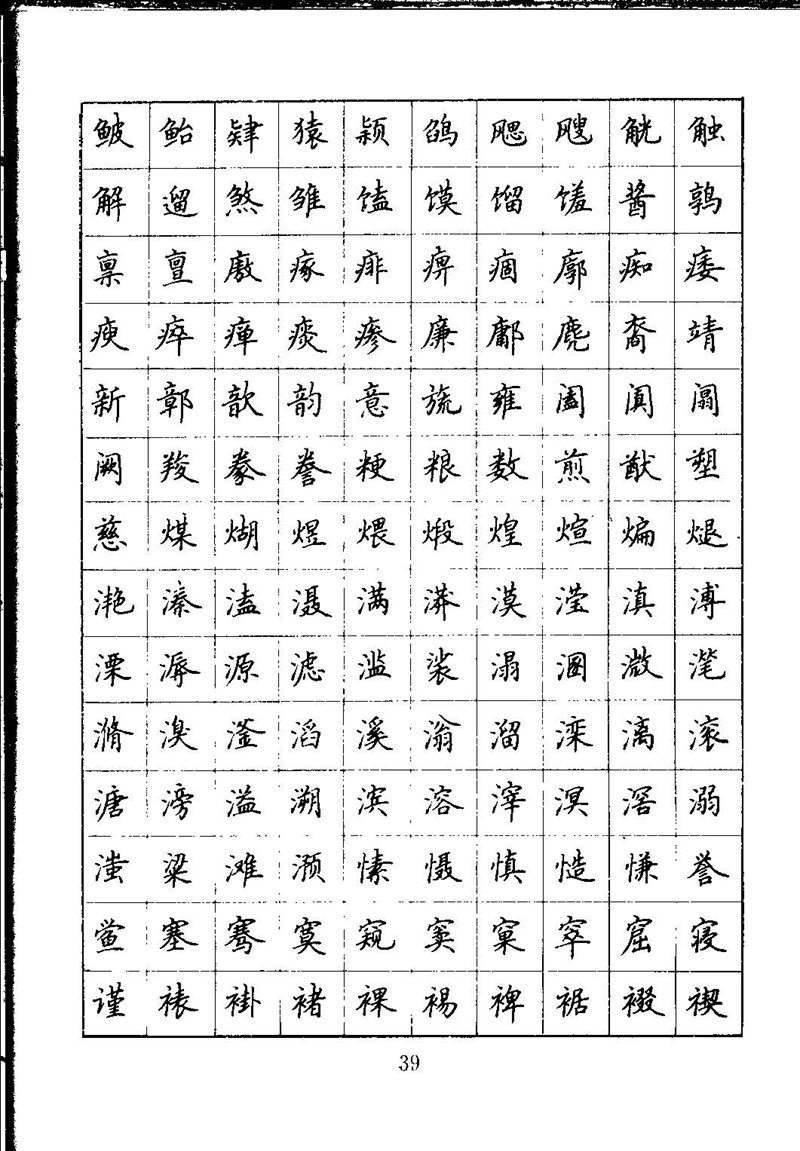 鲅 鲐 肄 猿 颖 鸽 飔 飕 觥 触
解 遛 煞 雏 馌 馍 馏 馐 酱 鹑
禀 亶 廒 瘃 痱 痹 痼 廓 痴 痿
瘐 瘁 瘅 痰 瘆 廉 鄘 麂 裔 靖
新 鄣 歆 韵 意 旒 雍 阖 阗 阘
阙 羧 豢 誊 粳 粮 数 煎 猷 塑
慈 煤 煳 煜 煨 煅 煌 煊 煸 煺
滟 溱 溘 滠 满 漭 漠 滢 滇 溥
溧 溽 源 滤 滥 裟 溻 溷 溦 滗
滫 溴 滏 滔 溪 滃 溜 滦 漓 滚
溏 滂 溢 溯 滨 溶 滓 溟 溍 溺
滍 粱 滩 滪 愫 慑 慎 慥 慊 誉
鲎 塞 骞 寞 窥 窦 窠 窣 窟 寝
谨 裱 褂 褚 裸 裼 裨 裾 裰 禊
39